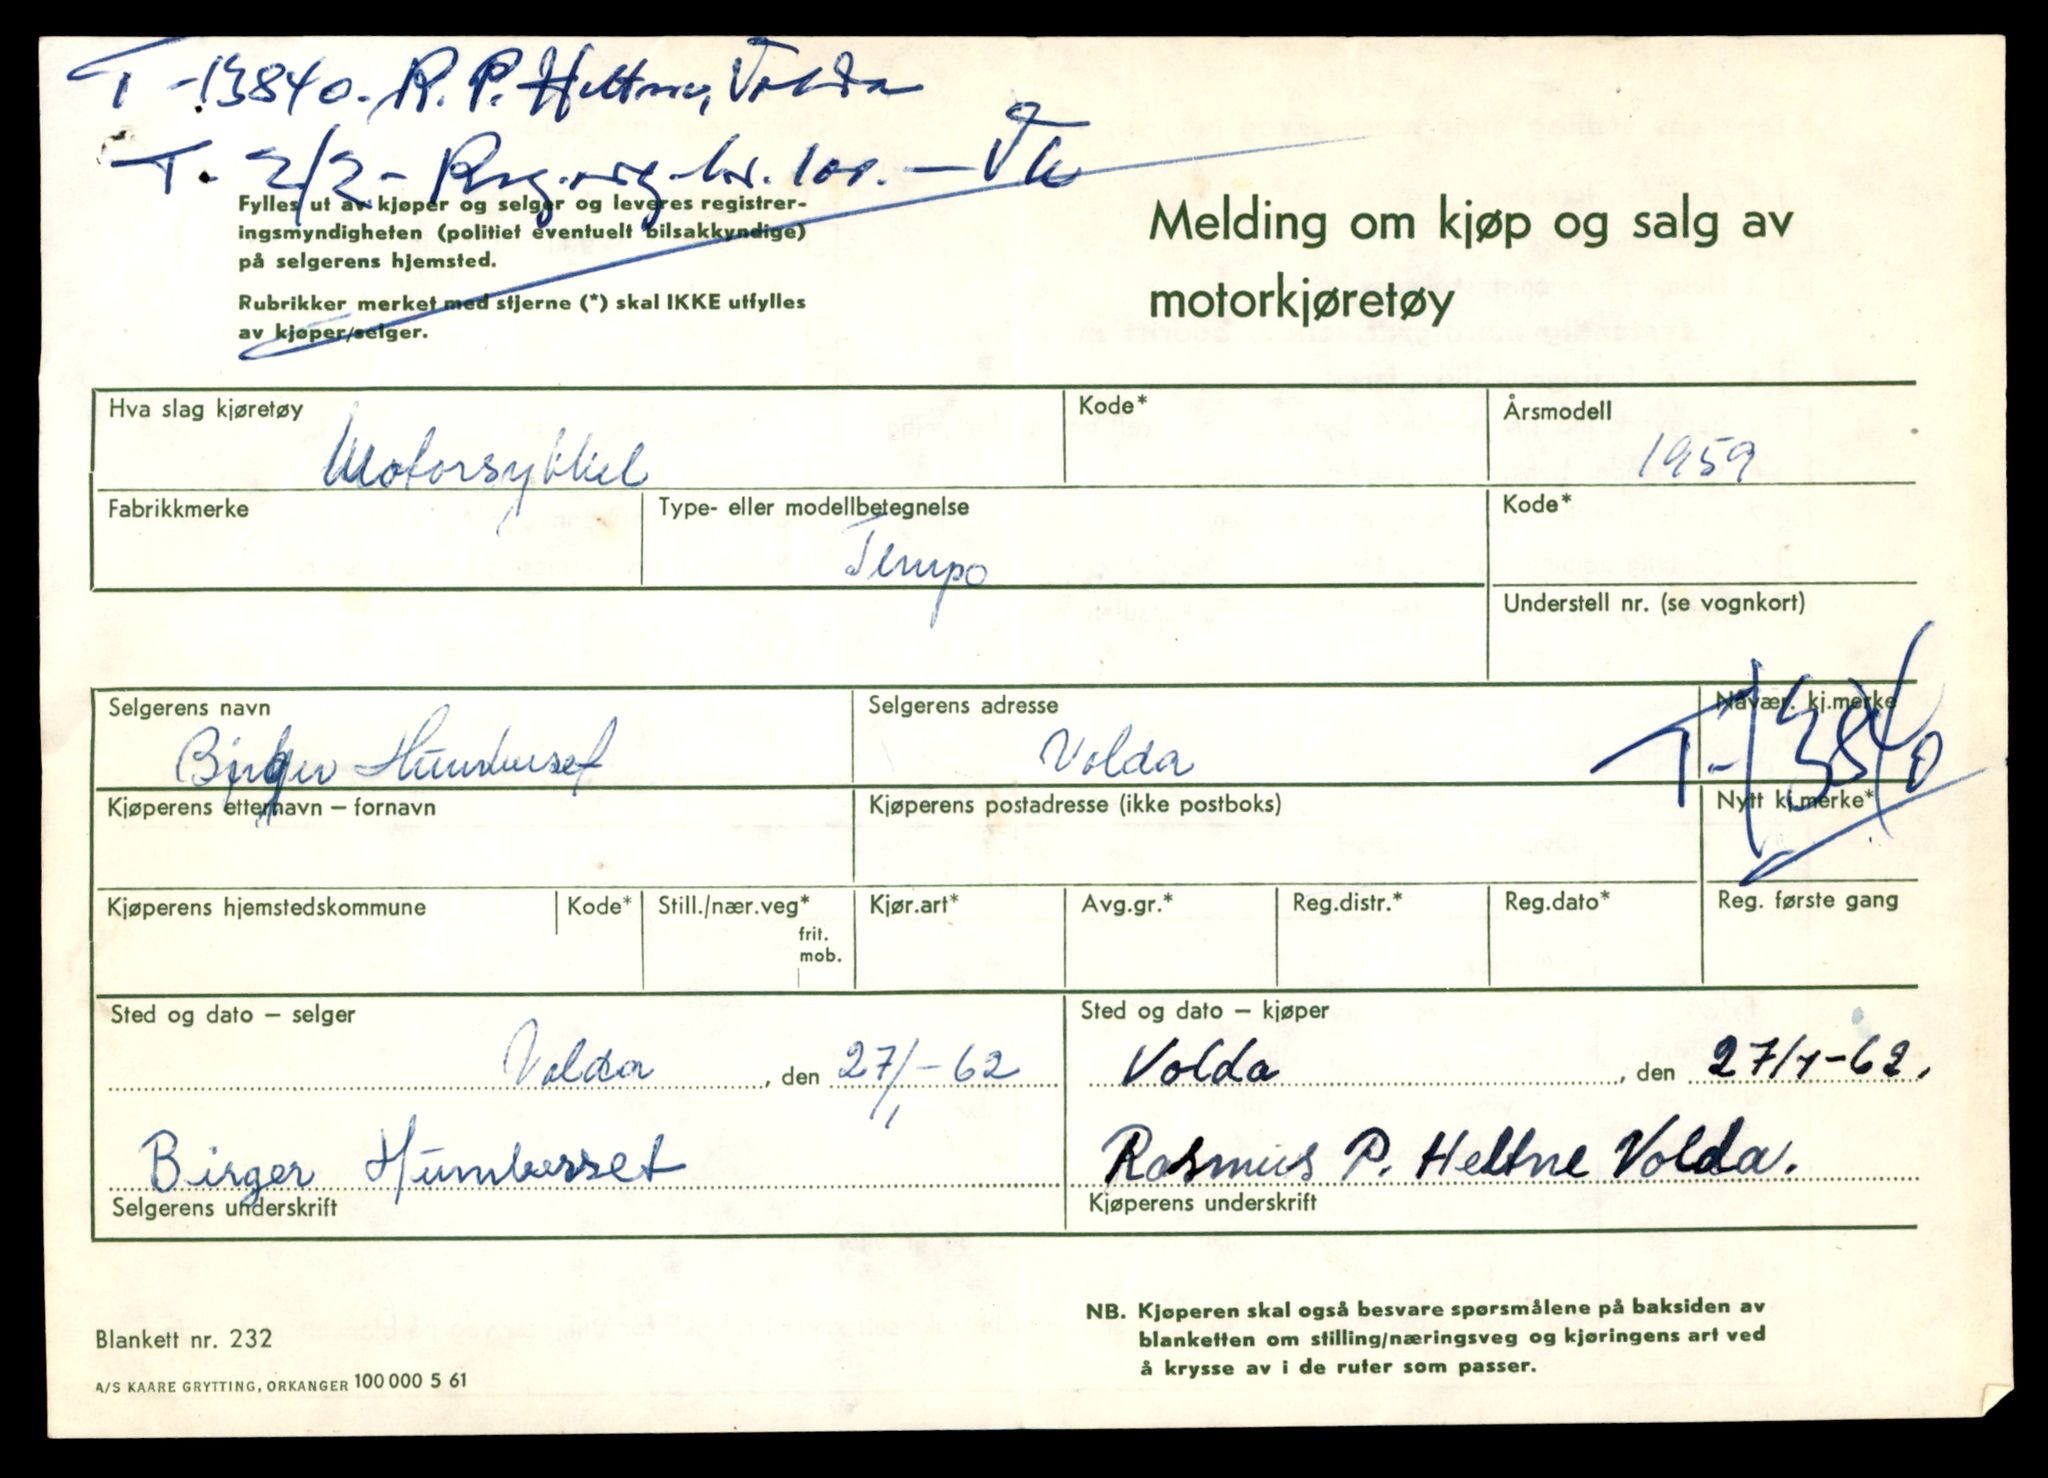 T-13840. R. P. Heltne, Volda
T. 2/2 -
Fylles ut av kjøper og selger og leveres registrer-
ingsmyndigheten (politiet eventuelt bilsakkyndige)
på selgerens hjemsted.
Rubrikker merket med stjerne (*) skal IKKE utfylles
av kjøper/selger.
Melding om kjøp og salg av
motorkjøretøy
Hva slag kjøretøy Kode* Årsmodell
Motorsykkel 1959
Fabrikkmerke Type- eller modellbetegnelse Kode*
Tempo
Understell nr. (se vognkort)
Selgerens navn Selgerens adresse Navær. kj.merke
Birger Humberset Volda T-13840
Kjøperens etternavn – fornavn Kjøperens postadresse (ikke postboks) Nytt kj.merke*
Kjøperens hjemstedskommune Kode* Still./nær.veg* Kjør.art* Avg.gr.* Reg.distr.* Reg.dato* Reg. første gang
frit.
mob.
Sted og dato – selger Sted og dato – kjøper
Volda, den 27/1-62 Volda, den 27/1-62.
Birger Humberset Rasmus P. Heltne Volda.
Selgerens underskrift Kjøperens underskrift
NB. Kjøperen skal også besvare spørsmålene på baksiden av
blanketten om stilling/næringsveg og kjøringens art ved
å krysse av i de ruter som passer.
Blankett nr. 232
A/S KAARE GRYTTING, ORKANGER 100 000 5 61